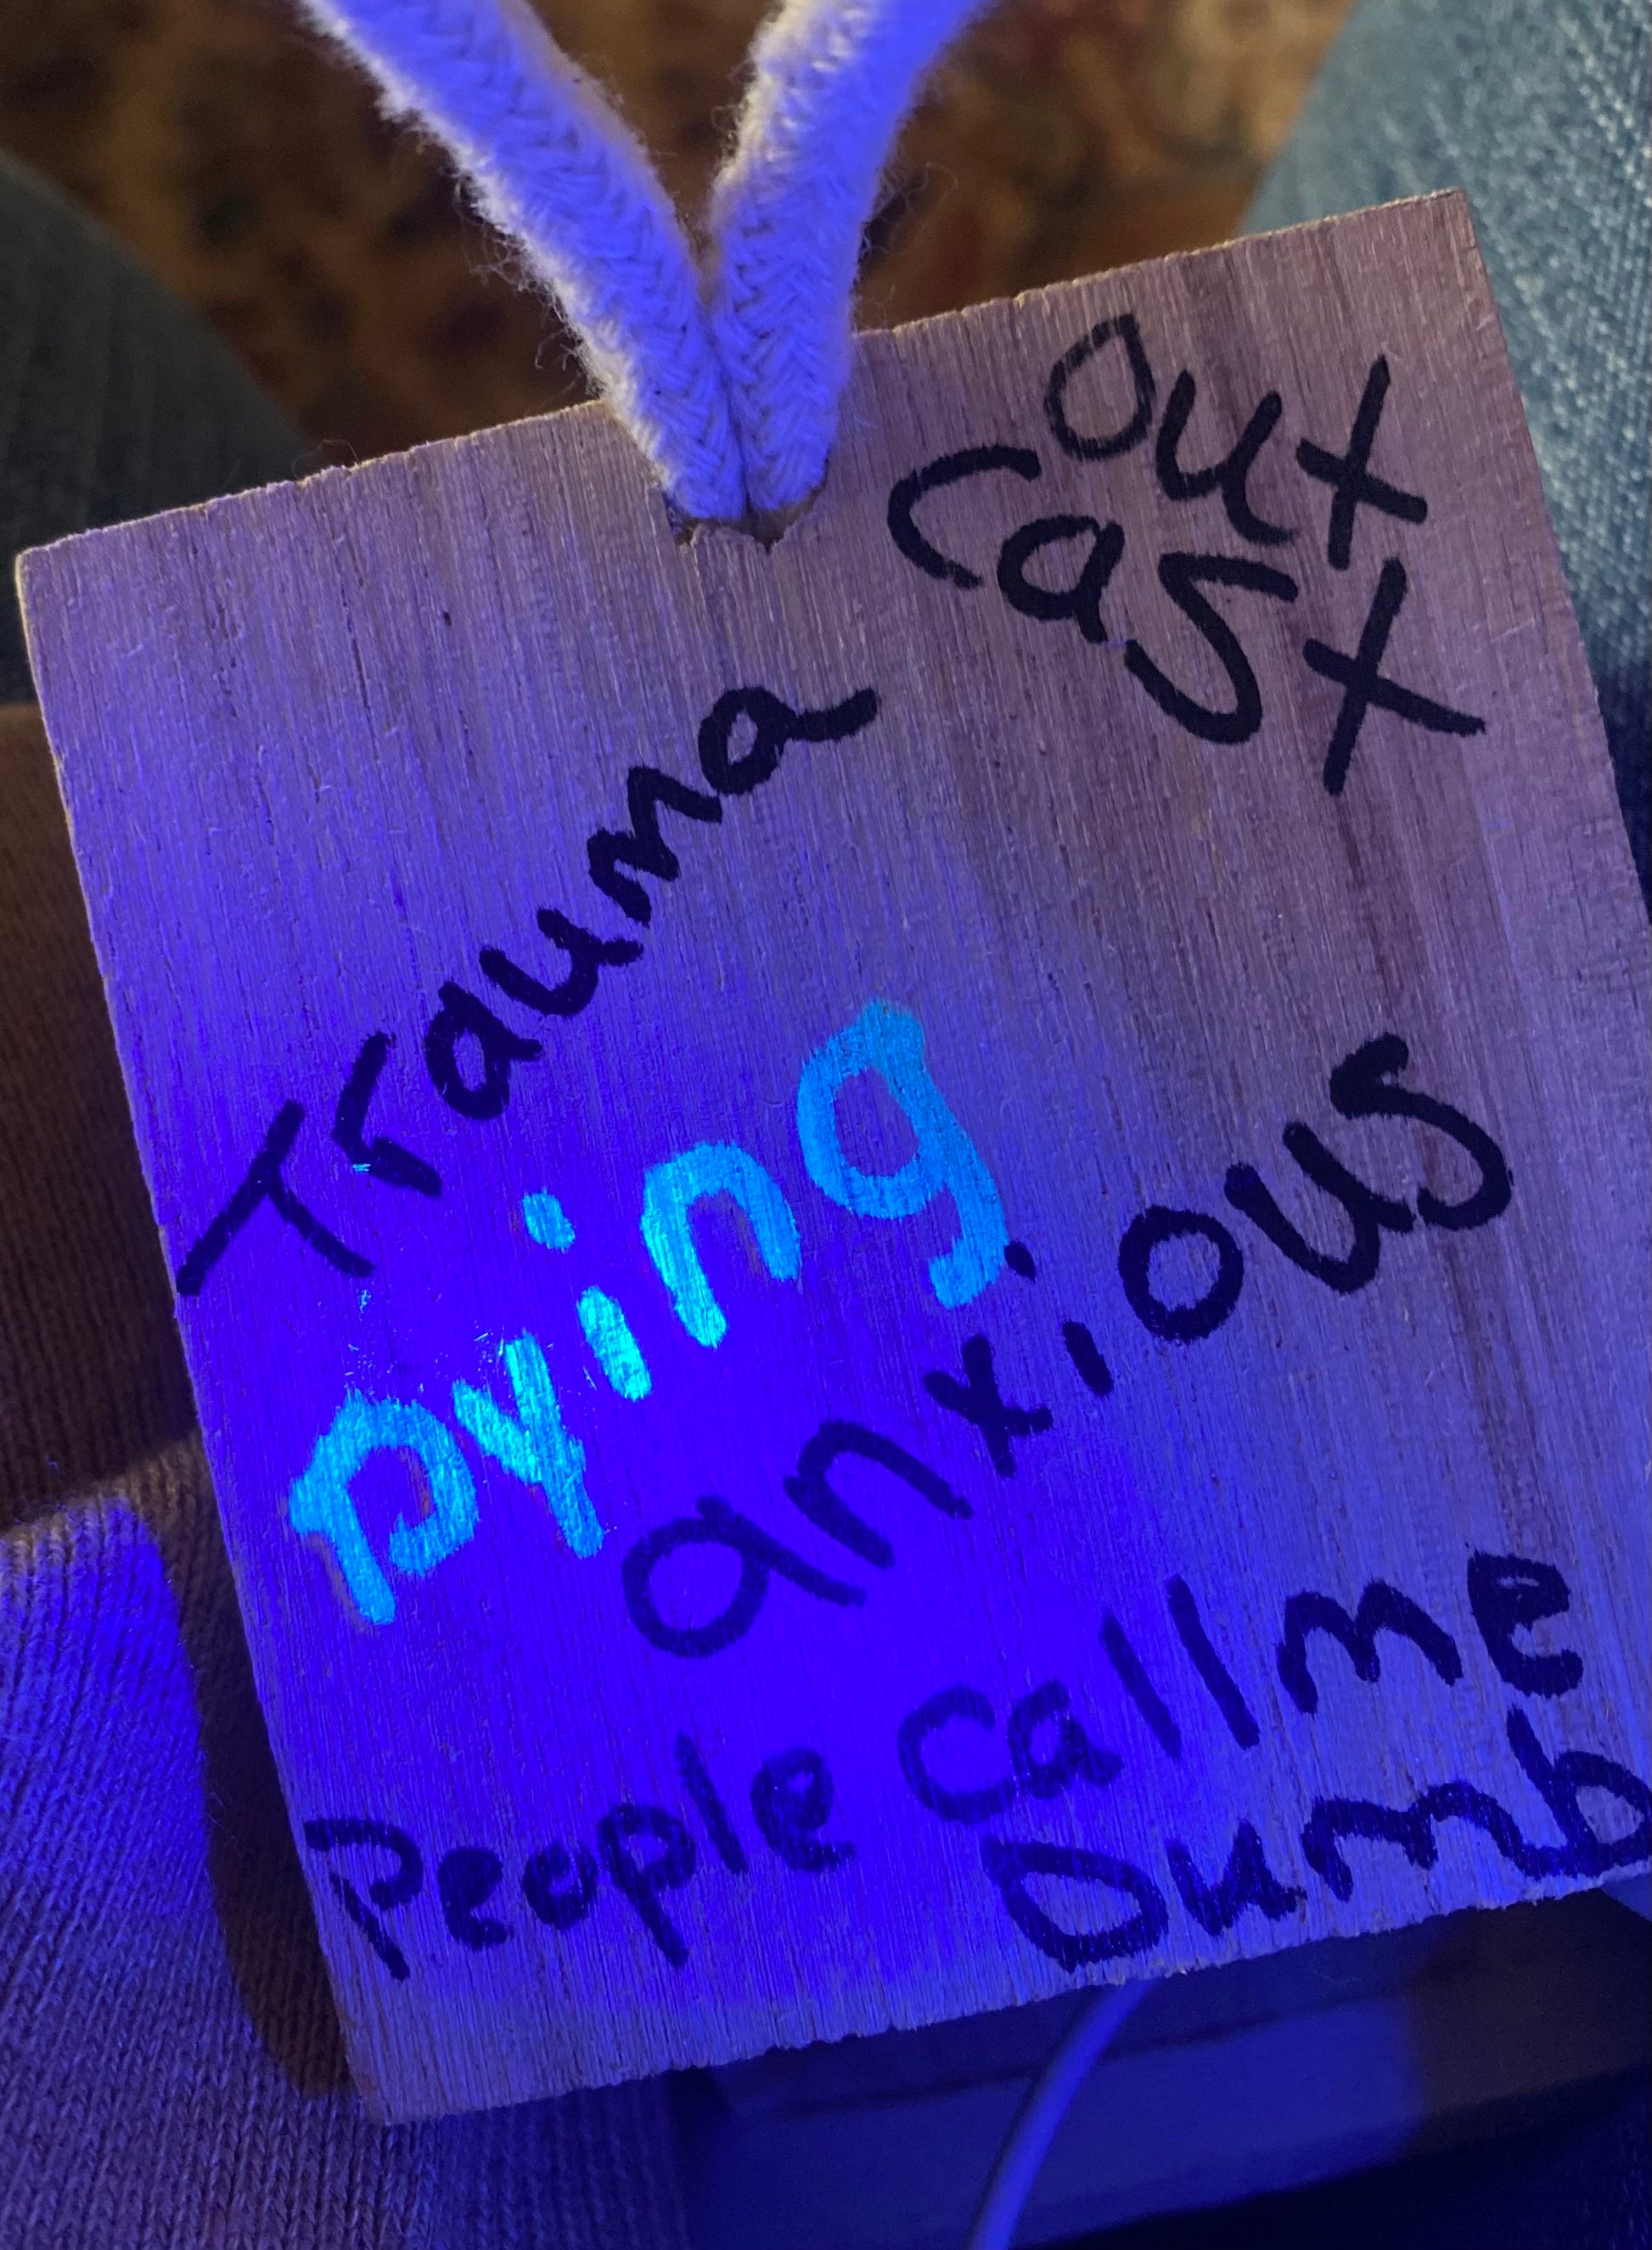 out
cast
Trauma
Dying
anxious
People call me
Dumb